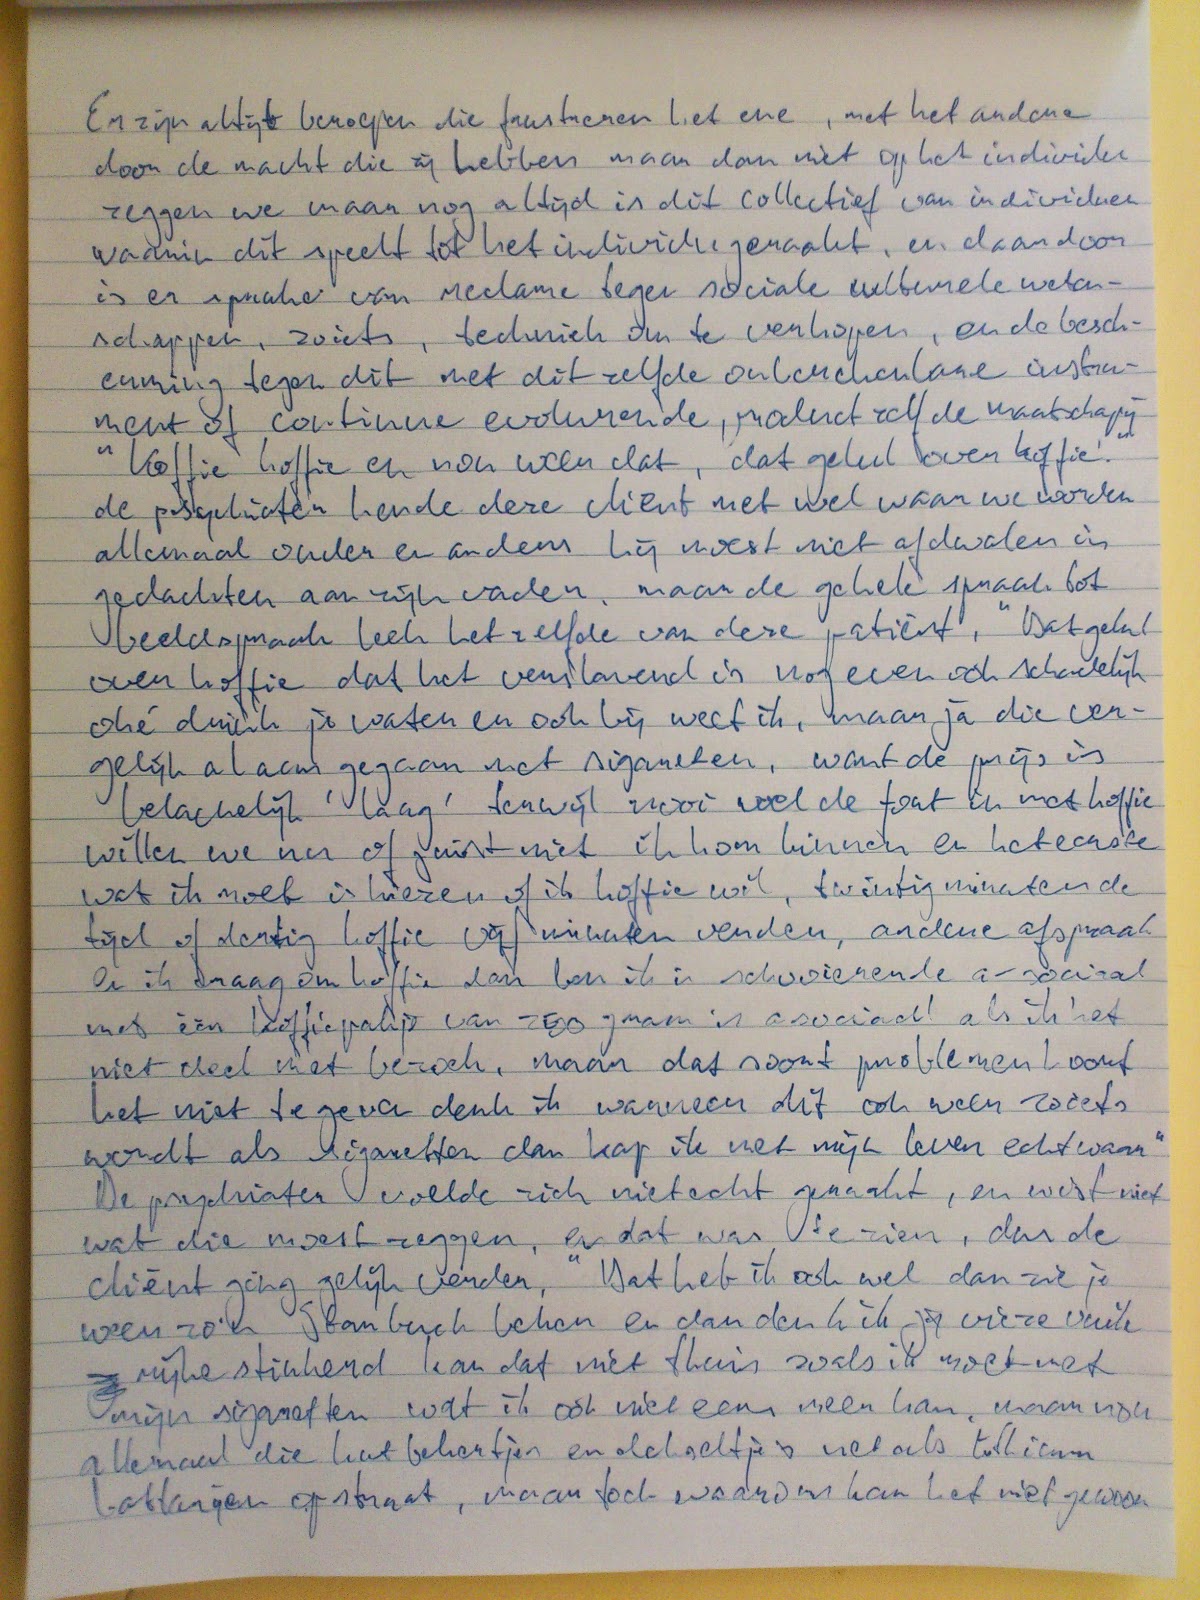 Er zijn altijt beroepen die frustreren het ene , met het andere
door de macht die zij hebben maar dan niet op het individu
zeggen we maar nog altijd is dit collectief van individuen
waarin dit speelt tot het individu geraakt, en daardoor
is er sprake van reclame tegen sociale culturele weten-
schappen, zoiets, techniek om te verkopen, en de besch-
erming tegen dit met dit zelfde instru-
ment of continue evoluerende, product zelfde maatschapij
" Koffie koffie en nou weer dat, dat gelul over koffie."
de psychiater kende deze cliënt met wel waar we worden
allemaal ouder en anders hij moest niet afdwalen in
gedachten aan zijn vader, maar de gehele spraak tot
beeldspraak leek het zelfde van deze patiënt, "Dat gelul
over koffie dat het verslavend is nog even ook schadelijk
oké drink je water en ook bij weet ik, maar ja die ver-
gelijk al aan gegaan met sigaretten, want de prijs is
belachelijk 'laag' terwijl nooi voel de fout in met koffie
willen we nu of juist niet ik kom binnen en het eerste
wat ik moet is kiezen of ik koffie wil, twintig minuten de
tijd of dertig koffie vijf minuten verder, andere afspraak
en ik vraag om koffie dan ben ik a-sociaal
met één koffiepakje van 250 gram is asociaal als ik het
niet deel met bezoek, maar dat soort problemen hoort
het niet te geven denk ik wanneer dit ook weer zoiets
wordt als sigaretten dan kap ik met mijn leven echt waar"
De psychiater voelde zich niet echt geraakt, en wist niet
wat die moest zeggen, en dat was te zien, dus de
cliënt ging gelijk verder, " Dat heb ik ook wel dan zie je
weer zo'n beker en dan denk ik jij vieze vuile
rijke stinkerd kan dat niet thuis zoals ik moet met
mijn sigaretten wat ik ook niet eens meer kan, maar nou
allemaal die kutbekertjes en dekseltjes net als
op straat, maar toch waarom kan het niet gewoon